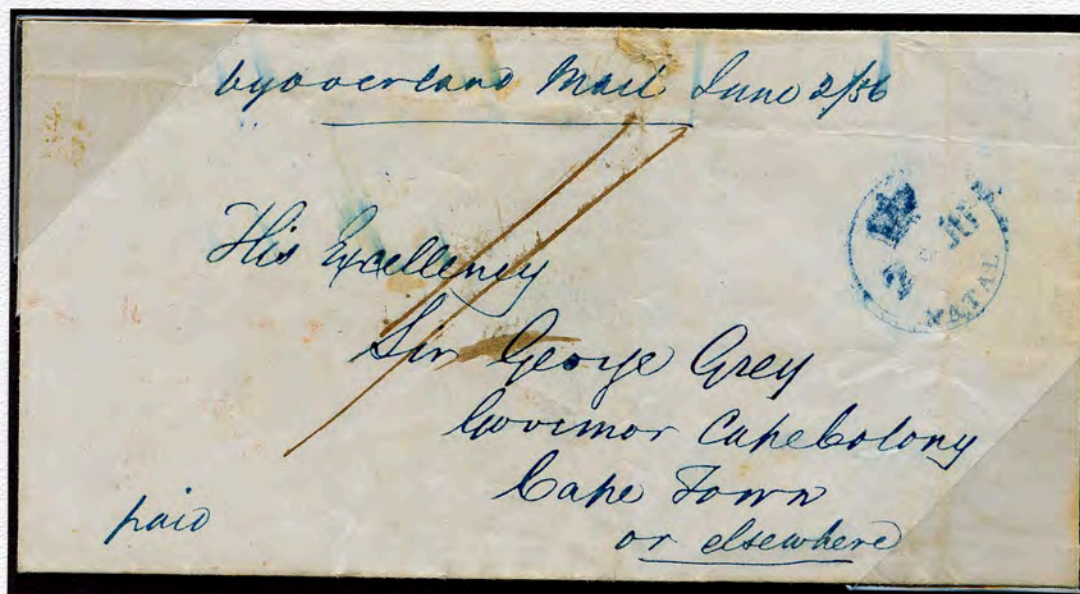 by overland Mail June 2/56
His Excellency
Sir George Grey
Governor Cape Colony
Cape Town
or elsewhere
paid
NATAL